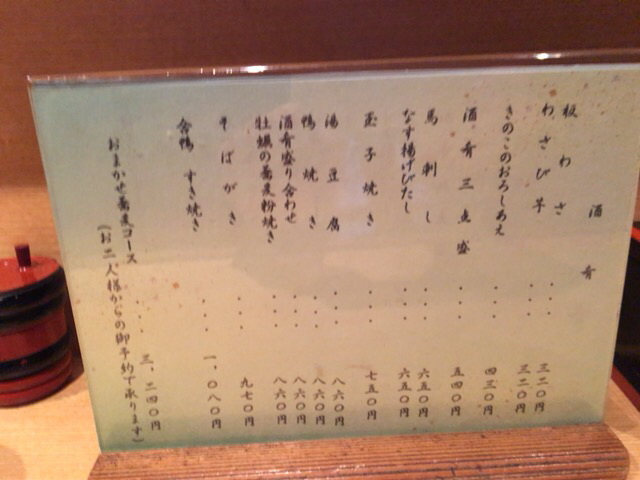 酒肴
板わさ ・・・ 三二〇円
わさび芋 ・・・ 三二〇円
きのこのおろしあえ ・・・ 四三〇円
酒肴三点盛 ・・・ 五四〇円
馬刺し ・・・ 六五〇円
なす揚げびたし ・・・ 六五〇円
玉子焼き ・・・ 七五〇円
湯豆腐 ・・・ 八六〇円
鴨焼き ・・・ 八六〇円
酒肴盛り合わせ ・・・ 八六〇円
牡蠣の蕎麦粉焼き ・・・ 八六〇円
そばがき ・・・ 九七〇円
合鴨すき焼き ・・・ 一、〇八〇円
おまかせ蕎麦コース ・・・ 三、二四〇円
(お二人様からの御予約で承ります)